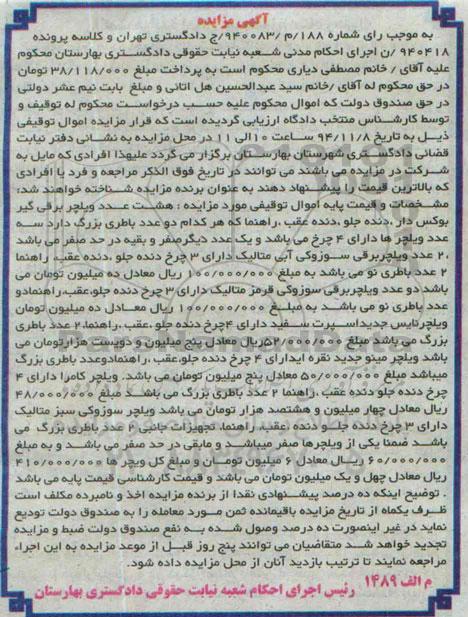 آگهی مزایده
به موجب رای شماره ۱۸۸/م /۹۴۰۰۸۳/ج دادگستری تهران و کلاسه پرونده
۹۴۰۴۱۸ /ن اجرای احکام مدنی شعبه نیابت حقوقی دادگستری بهارستان محکوم
علیه آقای / خانم مصطفی دیاری محکوم است به پرداخت مبلغ ۳۸/۱۱۸/۰۰۰ تومان
در حق محکوم له آقای /خانم سید عبدالحسین هل اتائی و مبلغ بابت نیم عشر دولتی
در حق صندوق دولت که اموال محکوم علیه حسب درخواست محکوم له توقیف و
توسط کارشناس منتخب دادگاه ارزیابی گردیده است که قرار مزایده اموال توقیفی
ذیل به تاریخ ۹۴/۱۱/۸ ساعت ۱۰ الی ۱۱ در محل مزایده به نشانی دفتر نیابت
قضائی دادگستری شهرستان بهارستان برگزار می گردد علیهذا افرادی که مایل به
شرکت در مزایده می باشند می توانند در تاریخ فوق الذکر مراجعه و فرد یا افرادی
که بالاترین قیمت را پیشنهاد دهند به عنوان برنده مزایده شناخته خواهند شد:
مشخصات و قیمت پایه اموال توقیفی مورد مزایده : هشت عدد ویلچر برقی گیر
بوکس دار ،دنده جلو ،دنده عقب ،راهنما که هر کدام دو عدد باطری بزرگ دارد سه
عدد ویلچر ها دارای ۴ چرخ می باشد و یک عدد دیگر صفر و بقیه در حد صفر می باشد
،۲ عدد ویلچربرقی سوزوکی آبی متالیک دارای ۳ چرخ دنده جلو ،دنده عقب، راهنما
۲ عدد باطری نو می باشد به مبلغ ۱۰۰/۰۰۰/۰۰۰ ریال معادل ده میلیون تومان می
باشد دو عدد ویلچربرقی سوزوکی قرمز متالیک دارای ۳ چرخ دنده جلو،عقب،راهنمادو
عدد باطری نو می باشد به مبلغ ۱۰۰/۰۰۰/۰۰۰ ریال معادل ده میلیون تومان
ویلچرنایس جدیداسپرت سفید دارای ۴چرخ دنده جلو ،عقب،راهنما،۲ عدد باطری
بزرگ می باشد مبلغ ۵۲/۰۰۰/۰۰۰ریال معادل پنج میلیون و دویست هزارتومان می
باشد ویلچر مینو جدید نقره ایدارای ۴ چرخ دنده جلو،عقب،راهنمادوعدد باطری بزرگ
میباشد مبلغ ۵۰/۰۰۰/۰۰۰ معادل پنج میلیون تومان می باشد. ویلچر کامرا دارای ۴
چرخ دنده جلو دنده عقب، راهنما ۲ عدد باطری بزرگ می باشد مبلغ ۴۸/۰۰۰/۰۰۰
ریال معادل چهار میلیون و هشتصد هزار تومان می باشد ویلچر سوزوکی سبز متالیک
دارای ۳ چرخ دنده جلو و دنده عقب، راهنما، تجهیزات جانبی ۲ عدد باطری بزرگ می
باشد ضمنا یکی از ویلچرها صفر میباشد و مابقی در حد صفر می باشد و به مبلغ
۶۰/۰۰۰/۰۰۰ ریال معادل ۶ میلیون تومان و مبلغ کل ویچر ها ۴۱۰/۰۰۰/۰۰۰
ریال معادل چهل و یک میلیون تومان می باشد و قیمت کارشناسی قیمت پایه می باشد
. توضیح اینکه ده درصد پیشنهادی نقدا از برنده مزایده اخذ و نامبرده مکلف است
ظرف یکماه از تاریخ مزایده باقیمانده ثمن مورد معامله را به صندوق دولت تودیع
نماید در غیر اینصورت ده درصد وصول شده به نفع صندوق دولت ضبط و مزایده
تجدید خواهد شد متقاضیان می توانند پنج روز قبل از موعد مزایده به این اجراء
مراجعه نمایند تا ترتیب بازدید آنان از محل مزایده داده شود.
م الف ۱۴۸۹ رئیس اجرای احکام شعبه نیابت حقوقی دادگستری بهارستان